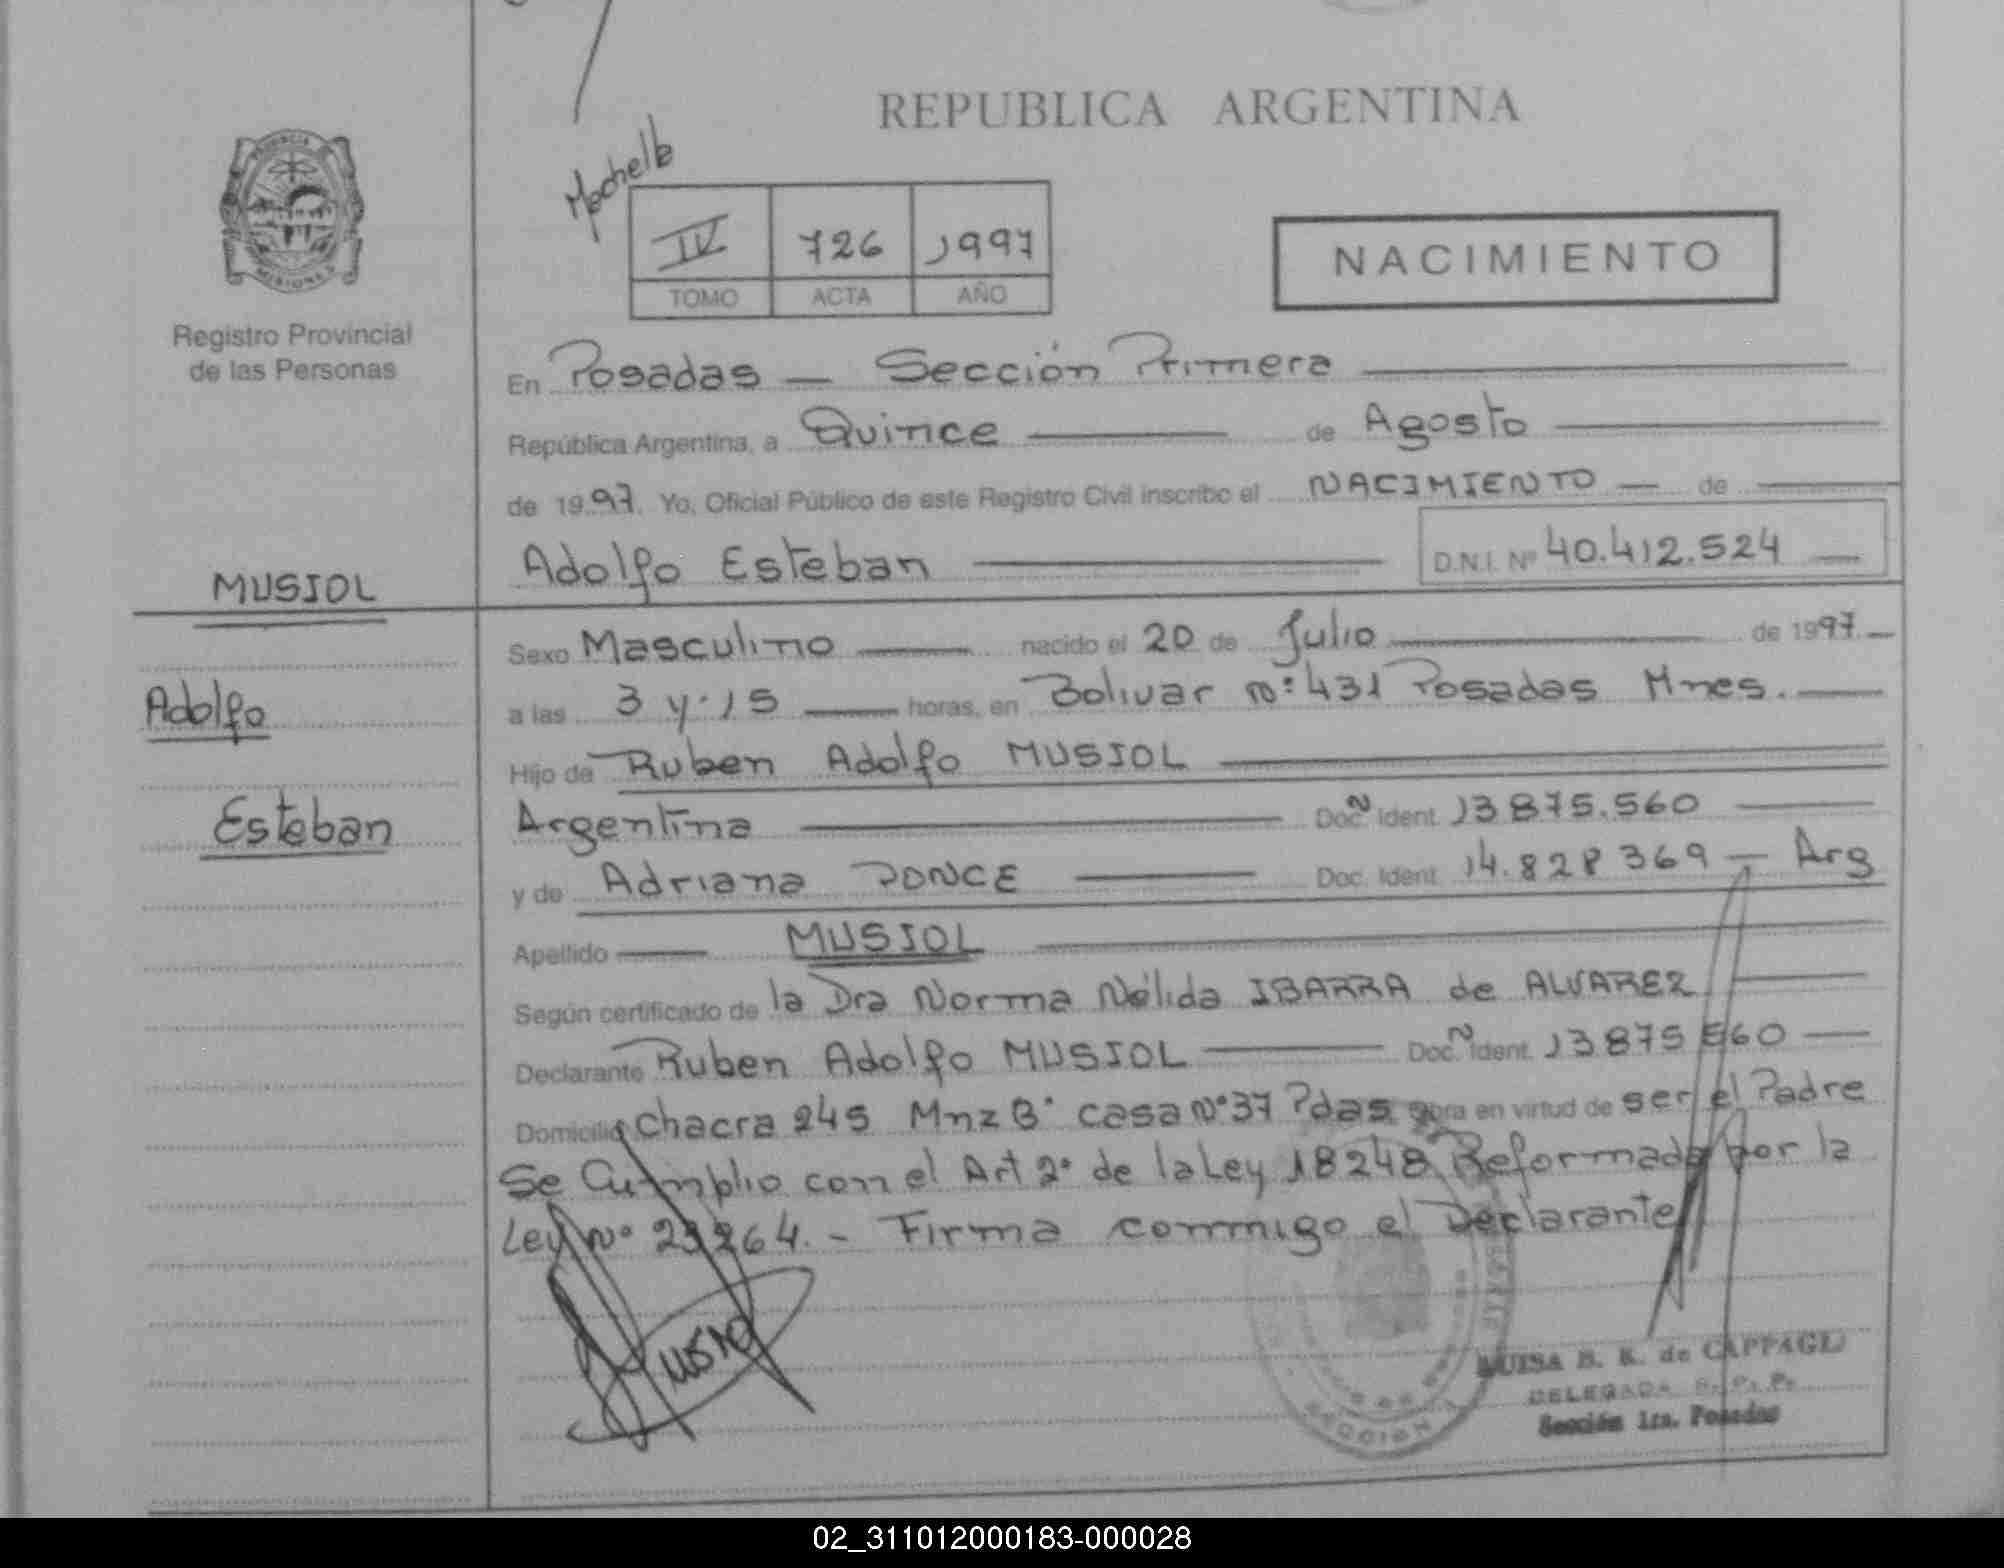 REPUBLICA ARGENTINA
PROVINCIA DE MISIONES
Registro Provincial
de las Personas
IV 726 1997
TOMO ACTA AÑO
NACIMIENTO
En Posadas — Sección Primera
República Argentina, a Quince de Agosto
de 1997. Yo, Oficial Público de este Registro Civil inscribo el NACIMIENTO — de
Adolfo Esteban D.N.I. Nº 40.412.524
MUSIOL
Adolfo
Esteban
Sexo Masculino nacido el 20 de Julio de 1997.
a las 3 y 15 horas, en Bolivar nº 431 Posadas Mnes.
Hijo de Ruben Adolfo MUSIOL
Argentina Doc. Ident. 13 875.560
y de Adriana PONCE Doc. Ident. 14.828 369 — Arg
Apellido MUSIOL
Según certificado de la Dra Norma Nélida IBARRA de ALVAREZ
Declarante Ruben Adolfo MUSIOL Doc. Ident. 13875 560
Domicilio Chacra 245 Mnz B casa Nº 37 Pdas obra en virtud de ser el Padre
Se Cumplio con el Art 2º de la Ley 18248 Reformada por la
Ley Nº 23264. - Firma conmigo el Declarante
LUISA B. K. de CAPPAGLI
DELEGADA R. P. P.
Sección 1ra. Posadas
02_311012000183-000028